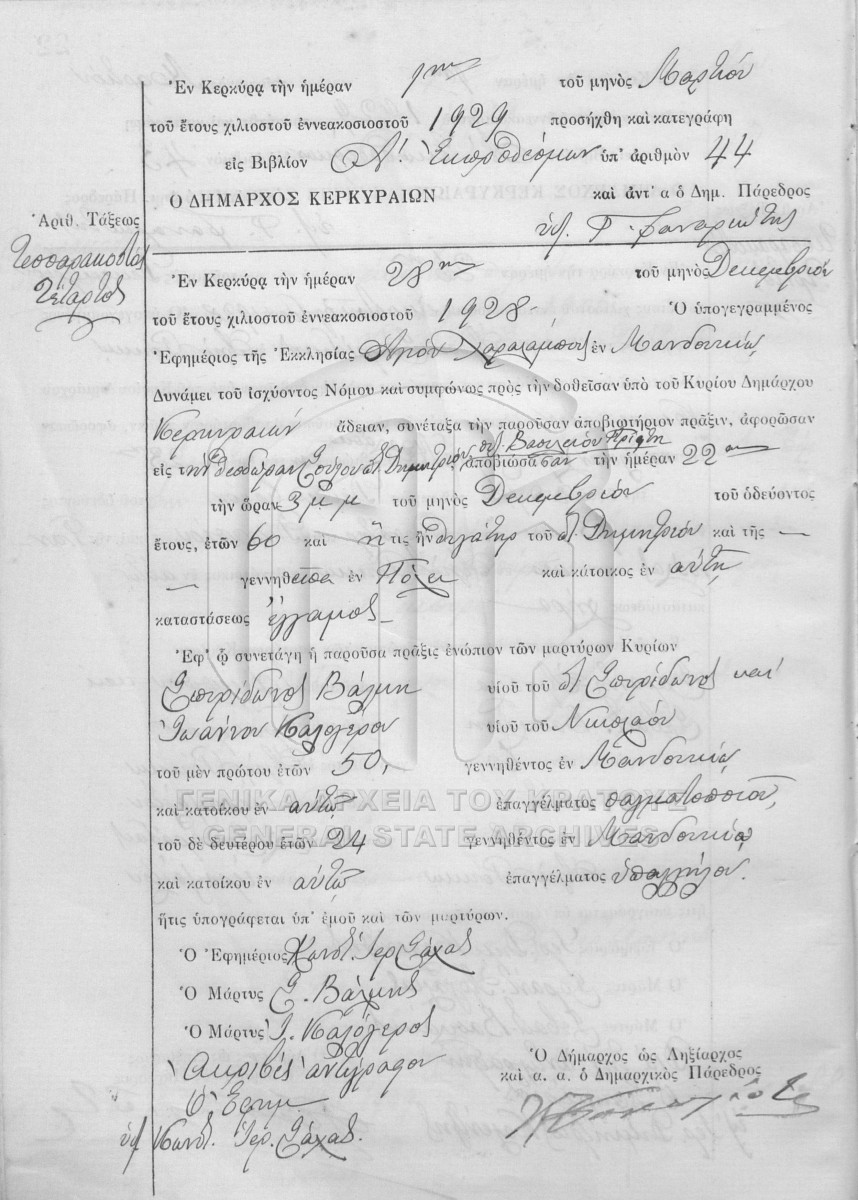 Ἐν Κερκύρᾳ τὴν ἡμέραν 1ην τοῦ μηνὸς Μαρτίου
τοῦ ἔτους χιλιοστοῦ ἐννεακοσιοστοῦ 1929 προσήχθη καὶ κατεγράφη
εἰς Βιβλίον Α΄. Ἐκπροθέσμων ὑπ' ἀριθμὸν 44
Ο ΔΗΜΑΡΧΟΣ ΚΕΡΚΥΡΑΙΩΝ καὶ ἀντ' α ὁ Δημ. Πάρεδρος
Ἀριθ. Τάξεως
ὑπ. Γ. Φαναριώτης
Τεσσαρακοστὸς
Τέταρτος
Ἐν Κερκύρᾳ τὴν ἡμέραν 28ην τοῦ μηνὸς Δεκεμβρίου
τοῦ ἔτους χιλιοστοῦ ἐννεακοσιοστοῦ 1928- Ὁ ὑπογεγραμμένος
Ἐφημέριος τῆς Ἐκκλησίας Ἁγίου Χαραλάμπους ἐν Μανδουκίῳ
Δυνάμει τοῦ ἰσχύοντος Νόμου καὶ συμφώνως πρὸς τὴν δοθεῖσαν ὑπὸ τοῦ Κυρίου Δημάρχου
Κερκυραίων ἄδειαν, συνέταξα τὴν παροῦσαν ἀποβιωτήριον πρᾶξιν, ἀφορῶσαν
εἰς τὴν Θεοδώραν Δημητρίου Βασιλείου ἀποβιώσασαν τὴν ἡμέραν 22αν
τὴν ὥραν 3 μ μ τοῦ μηνὸς Δεκεμβρίου τοῦ ὁδεύοντος
ἔτους, ἐτῶν 60 καὶ ἥτις ἦν θυγάτηρ τοῦ π. Δημητρίου καὶ τῆς —
— γεννηθεῖσα ἐν καὶ κάτοικος ἐν αὐτῇ
καταστάσεως ἔγγαμος-
Ἐφ' ᾧ συνετάγη ἡ παροῦσα πρᾶξις ἐνώπιον τῶν μαρτύρων Κυρίων
Σπυρίδωνος Βάλμη υἱοῦ τοῦ π. Σπυρίδωνος καὶ
Ἰωάννου Καλογέρου υἱοῦ τοῦ Νικολάου
τοῦ μὲν πρώτου ἐτῶν 50, γεννηθέντος ἐν Μανδουκίῳ
καὶ κατοίκου ἐν αὐτῷ ἐπαγγέλματος παλαιοπώλου,
τοῦ δὲ δευτέρου ἐτῶν 24 γεννηθέντος ἐν Μανδουκίῳ
καὶ κατοίκου ἐν αὐτῷ ἐπαγγέλματος ὑπαλλήλου.
ἥτις ὑπογράφεται ὑπ' ἐμοῦ καὶ τῶν μαρτύρων.
Ὁ Ἐφημέριος Κωνστ. Ἱερ. Σάχας
Ὁ Μάρτυς Σ. Βάλμης
Ὁ Μάρτυς Ἰ. Καλόγερος
Ἀκριβὲς ἀντίγραφον
Ὁ Ἐφημ.
ὑπ Κωνστ. Ἱερ. Σάχας.
Ὁ Δήμαρχος ὡς Ληξίαρχος
καὶ α. α. ὁ Δημαρχικὸς Πάρεδρος
ΓΕΝΙΚΑ ΑΡΧΕΙΑ ΤΟΥ ΚΡΑΤΟΥΣ
GENERAL STATE ARCHIVES